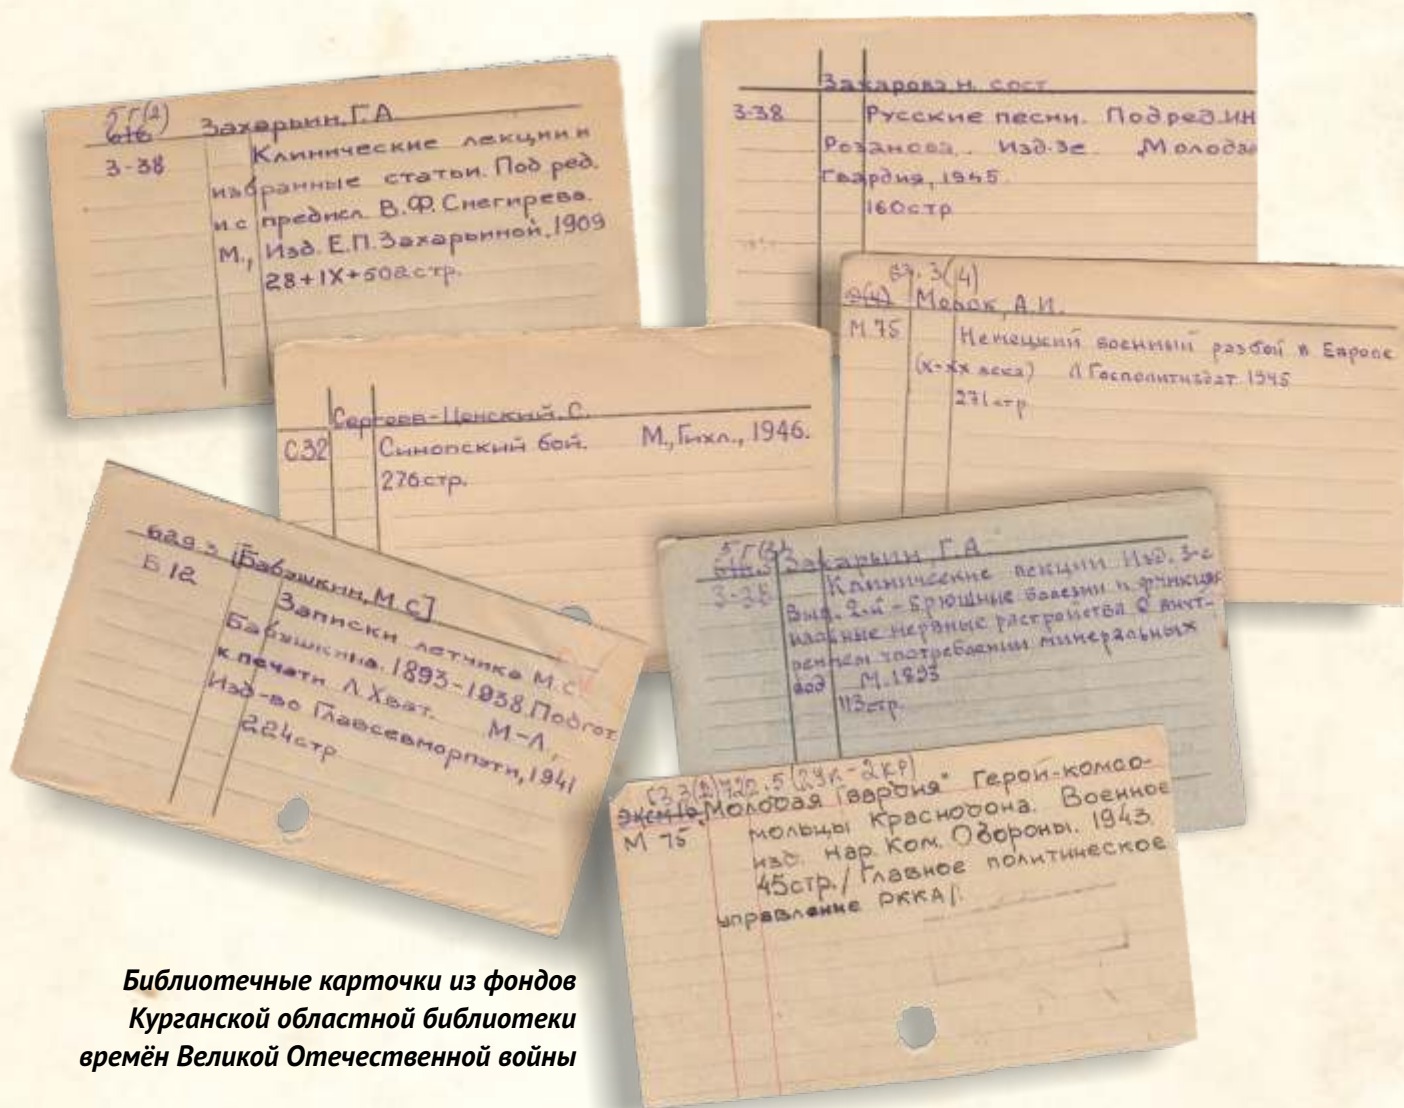 5Г(2)
616
З-38
Захарьин, Г.А
Клинические лекции и
избранные статьи. Под ред.
и с предисл. В.Ф. Снегирева.
М., Изд. Е.П. Захарьиной, 1909
28+IX+502стр.
Захарова Н. сост
З-38 Русские песни. Под ред. ИН
Розанова. Изд. 3е Молодая
Гвардия, 1945.
160стр
3(4)
А.И.
М.75 Немецкий военный разбой в Европе
(X-XX века) Л Госполитиздат 1945
271стр
Сергеев-Ценский, С.
С32 Синопский бой. М., Гихл., 1946.
276стр.
629.3 [Бабушкин, М.С]
Б12 Записки летчика М.С
Бабушкина. 1893-1938. Подгот.
к печати Л. Хват. М-Л,
Изд-во Главсевморпути, 1941
224стр
5Г(2)
Захарьин, Г.А
З-38 Клинические лекции Изд. 3-е
Вып. 2-й - Брюшные болезни и функцио
нальные нервные растройства О внут-
реннем употреблении минеральных
вод М. 1893
113стр.
63.3(2)722.5(2Ук-2Кр)
"Молодая Гвардия" Герои-комсо-
М 75 мольцы Краснодона. Военное
изд. Нар. Ком. Обороны. 1943
45стр. /Главное политическое
управление РККА/.
Библиотечные карточки из фондов
Курганской областной библиотеки
времён Великой Отечественной войны